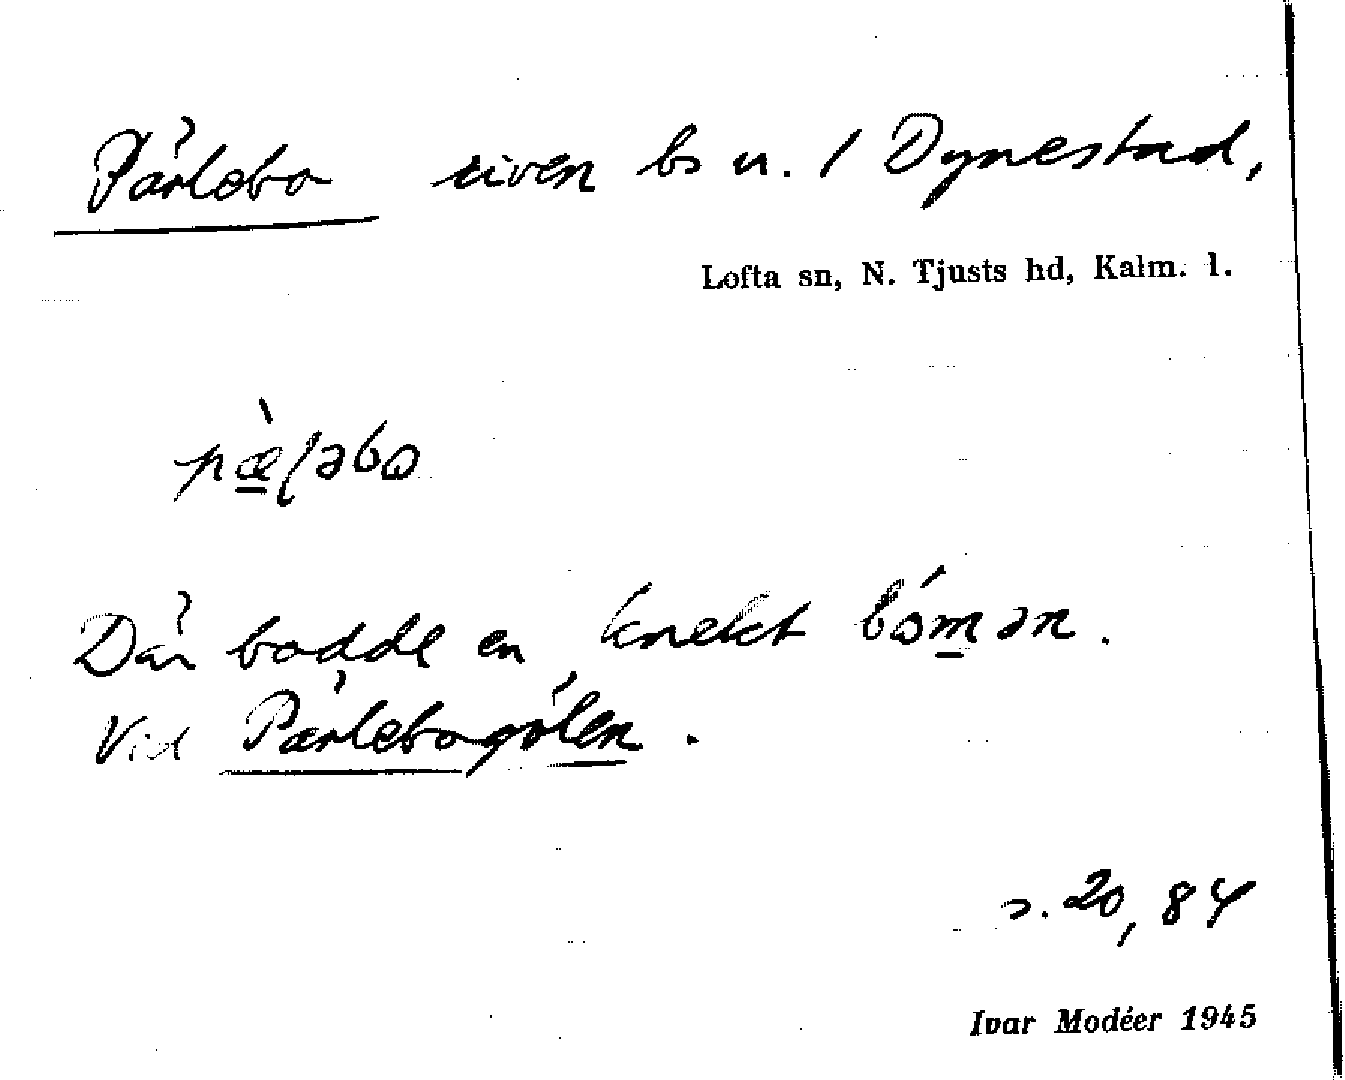 Pärlebo riven bs u. / Dynestad,
Lofta sn, N. Tjusts hd, Kalm. l.
pæ̀ɭəbo
Där bodde en knekt bóman.
Vid Pärlebogölen.
s. 20, 84
Ivar Modéer 1945